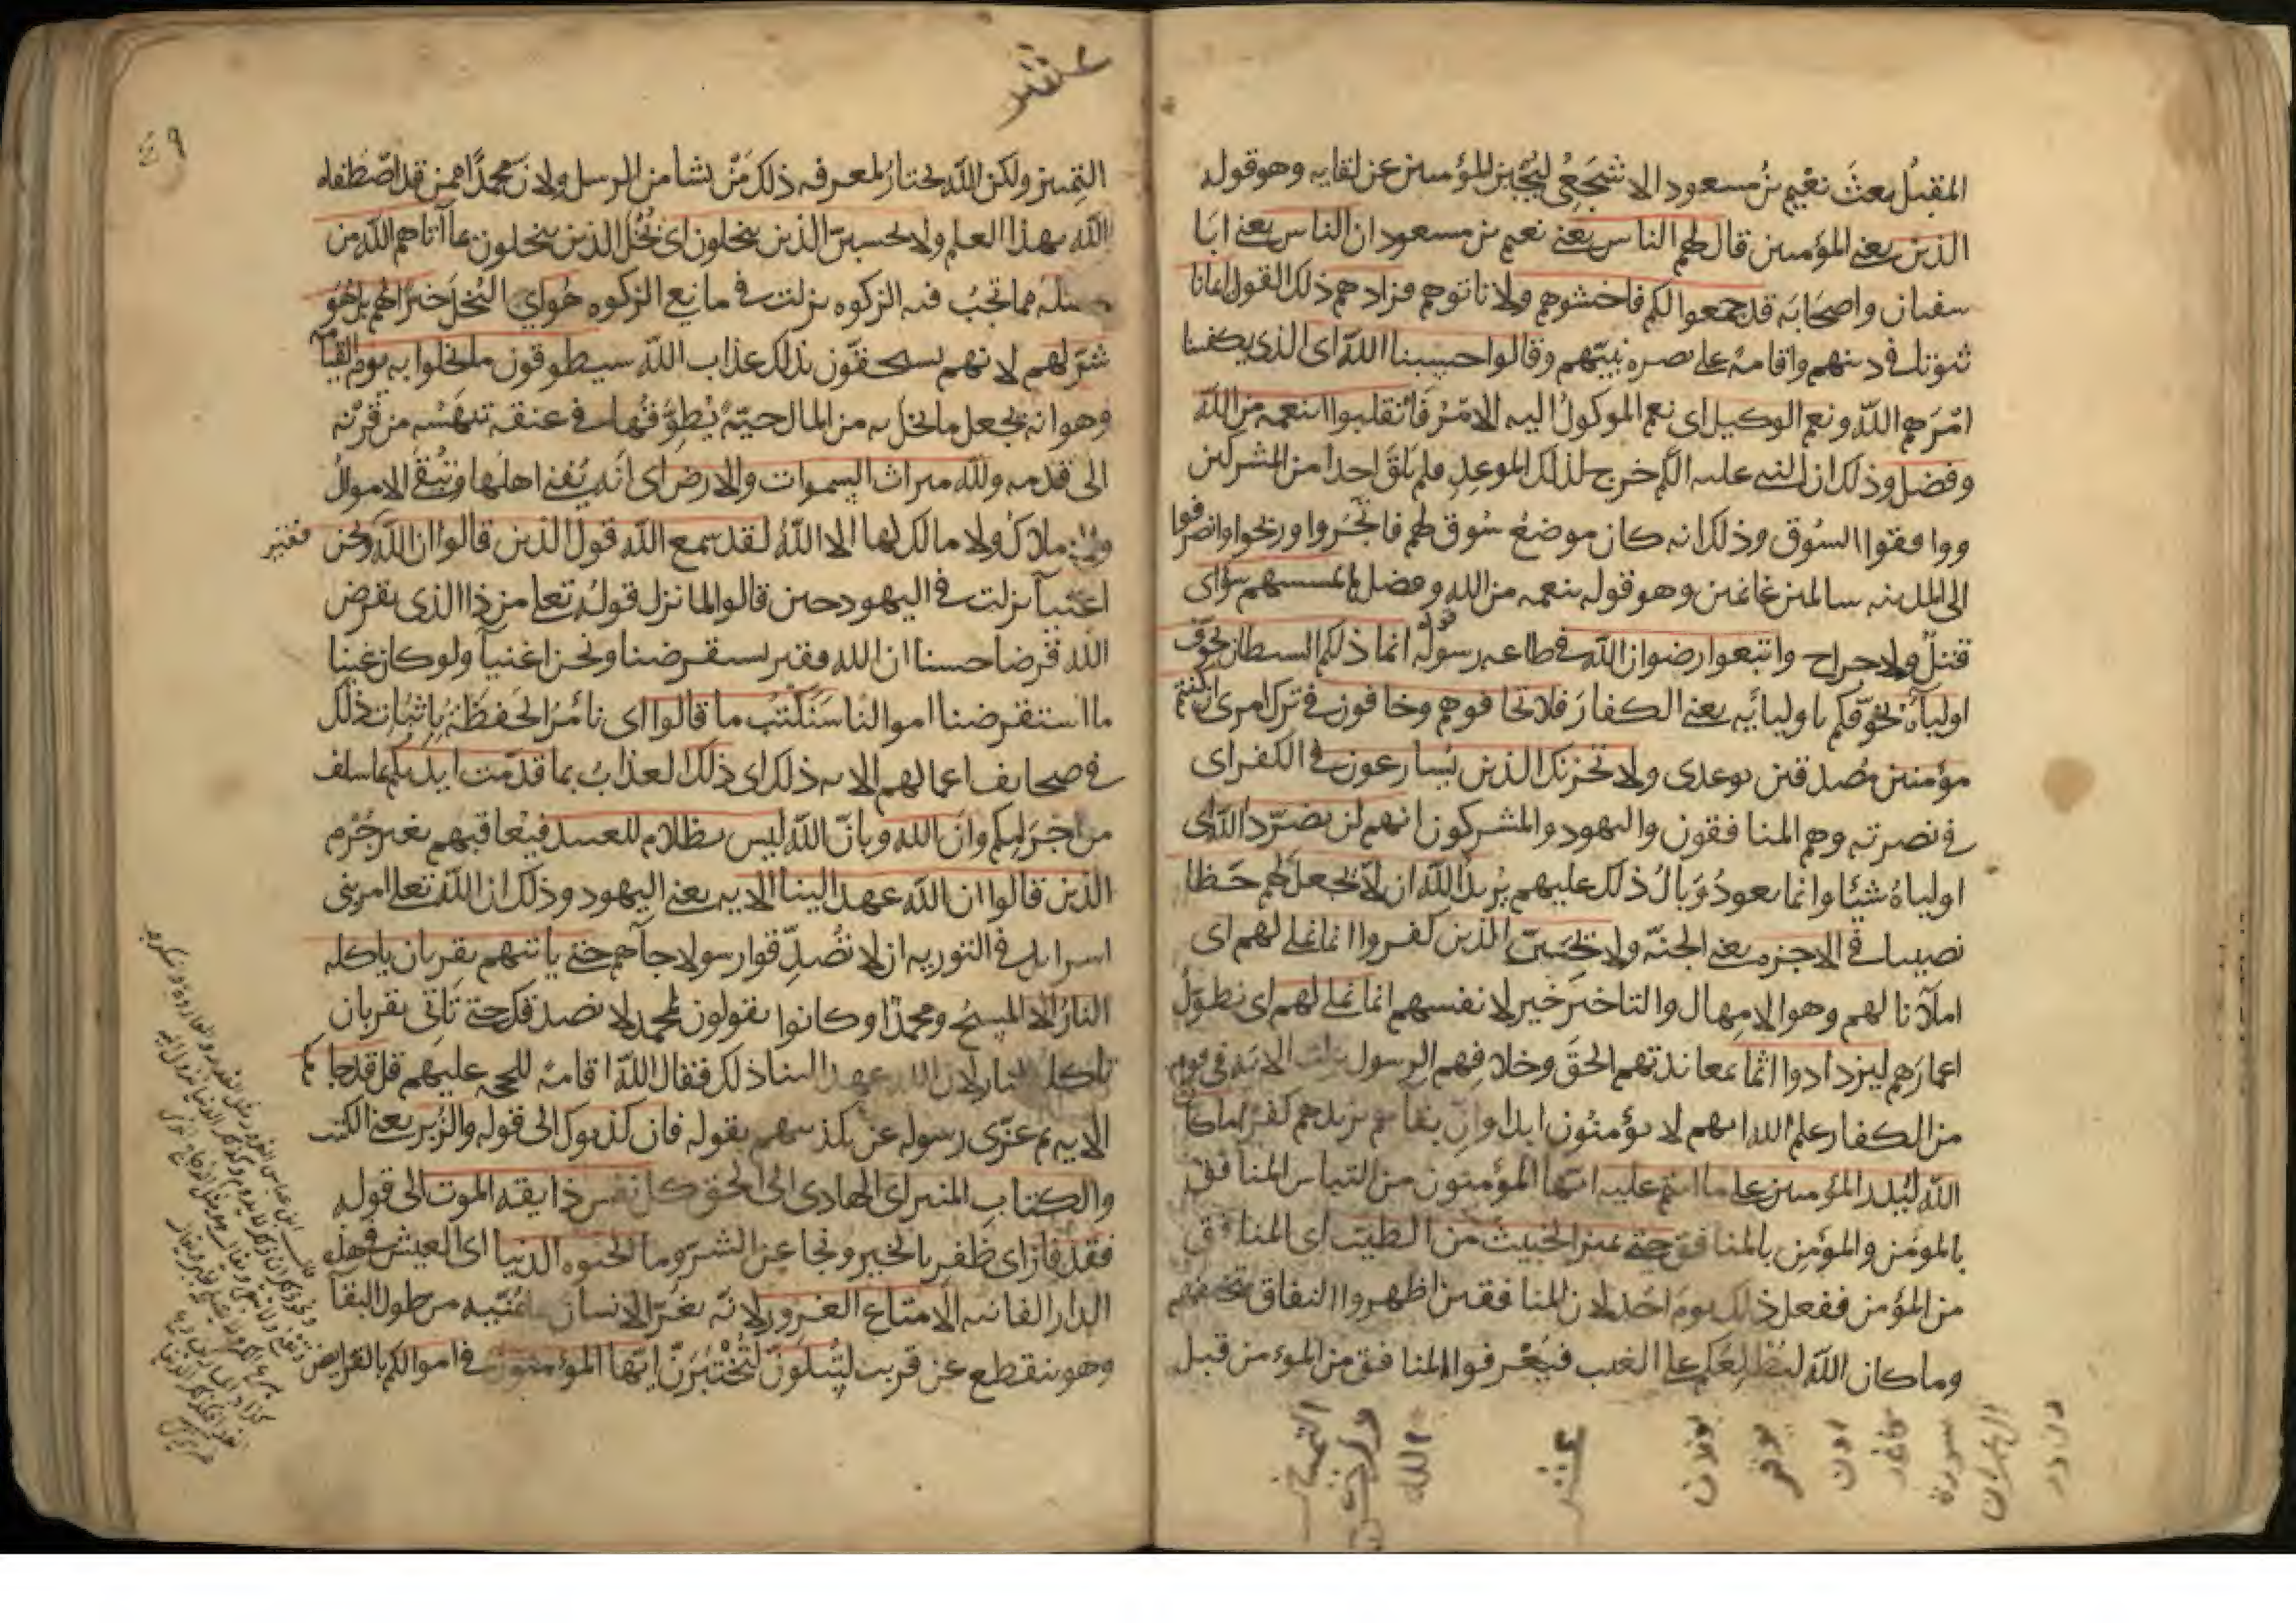 المقبل بعث نعيم بن مسعود الاشجعي ليجبن المؤمنين عن لقايه وهو قوله
الذين يعني المؤمنين قال لهم الناس يعني نعيم بن مسعود ان الناس يعني ابا
سفيان واصحابه قد جمعوا لكم فاخشوهم ولا تاتوهم فزادهم ذلك القول ايمانا
ثبوتا في دينهم واقامة على نصرة نبيهم وقالوا حسبنا الله اى الذي يكفينا
امرهم الله ونعم الوكيل اى نعم الموكول اليه الامر فانقلبوا بنعمه من الله
وفضل وذلك ان النبي عليه السلم خرج لذلك الموعد فلم يلق احدا من المشركين
ووافقوا السوق وذلك انه كان موضع سوق لهم فاتجروا وربحوا وانصرفوا
الى المدينه سالمين غانمين وهو قوله بنعمه من الله وفضل لم يمسسهم سؤ اى
قتل ولا جراح واتبعوا رضوان الله في طاعه رسوله انما ذلكم الشيطان يخوف
اولياءه يخوفكم باوليائه يعني الكفار فلا تخافوهم وخافون في ترك امرى ان كنتم
مؤمنين مصدقين بوعدى ولا تحزنك الذين يسارعون في الكفر اى
في نصرته وهم المنافقون واليهود والمشركون انهم لن يضروا الله اى
اولياه شيئا وانما يعود وبال ذلك عليهم يريد الله ان لا يجعل لهم حظا
نصيبا في الاخرة يعني الجنة ولا تحسبن الذين كفروا انما نملي لهم اى
املآنا لهم وهو الامهال والتاخير خير لانفسهم انما نملي لهم اى نطول
اعمارهم ليزدادوا اثما بمعاندتهم الحق وخلافهم الرسول نزلت الايه في قوم
من الكفار علم الله انهم لا يؤمنون ابدا وان بقاهم يزيدهم كفرا ما كان
الله ليذر المؤمنين على ما انتم عليه ايها المؤمنون من التباس المنافق
بالمؤمن والمؤمن بالمنافق حتى يميز الخبيث من الطيب اى المنافق
من المؤمن ففعل ذلك يوم احد لان المنافقين اظهروا النفاق بتخلفهم
وما كان الله ليطلعكم على الغيب فيعرفوا المنافق من المؤمن قبل
التمييز
عشر
سورة
ال عمران
عشر
التمييز ولكن الله يختار لمعرفه ذلك من يشا من الرسل ولان محمدا ممن قد اصطفاه
الله بهذا العلم ولا يحسبن الذين يبخلون اى بخل الذين يبخلون بما آتاهم الله من
فضله مما تجب فيه الزكوه نزلت في مانع الزكوه هو اي البخل خيرا لهم بل هو
شر لهم لانهم يستحقون بذلك عذاب الله سيطوقون ما بخلوا به يوم القيامه
وهو انه يجعل ما بخل به من المال حية يطوقها في عنقه تنهشه من قرنه
الى قدمه ولله ميراث السموات والارض اى انه يفني اهلها وتبقى الاموال
ولا مالك لها الا الله لقد سمع الله قول الذين قالوا ان الله فقير ونحن
اغنيآ نزلت في اليهود حين قالوا لما نزل قوله تعلى من ذا الذى يقرض
الله قرضا حسنا ان الله فقير يستقرضنا ونحن اغنيآ ولو كان غنيا
ما استقرضنا اموالنا سنكتب ما قالوا اى نامر الحفظة باثبات ذلك
في صحايف اعمالهم الايه ذلك اى ذلك العذاب بما قدمت ايديكم بما سلف
من اجرامكم وان الله وبان الله ليس بظلام للعبيد فيعاقبهم بغير جرم
الذين قالوا ان الله عهد الينا الايه يعني اليهود وذلك ان الله تعلى امر بني
اسرايل في التوريه ان لا تصدقوا رسولا جآهم حتى ياتيهم بقربان ياكله
النار الا المسيح ومحمدا وكانوا يقولون لمحمد لا نصدقك حتى تاتى بقربان
تاكله النار لان الله عهد الينا ذلك فقال الله اقامة للحجه عليهم قل قد جاكم
الايه ثم عزى رسوله عن تكذيبهم بقوله فان كذبوك الى قوله والزبر يعني الكتب
والكتاب المنير اى الهادى الى الحق كل نفس ذايقه الموت الى قوله
فقد فاز اى ظفر بالخير ونجا عن الشر وما الحيوه الدنيا اى العيش في هذه
الدار الفانيه الا متاع الغرور لانه يغر الانسان بما يمنيه من طول البقآ
وهو ينقطع عن قريب لتبلون لتختبرن ايها المؤمنون في اموالكم بالفرايض